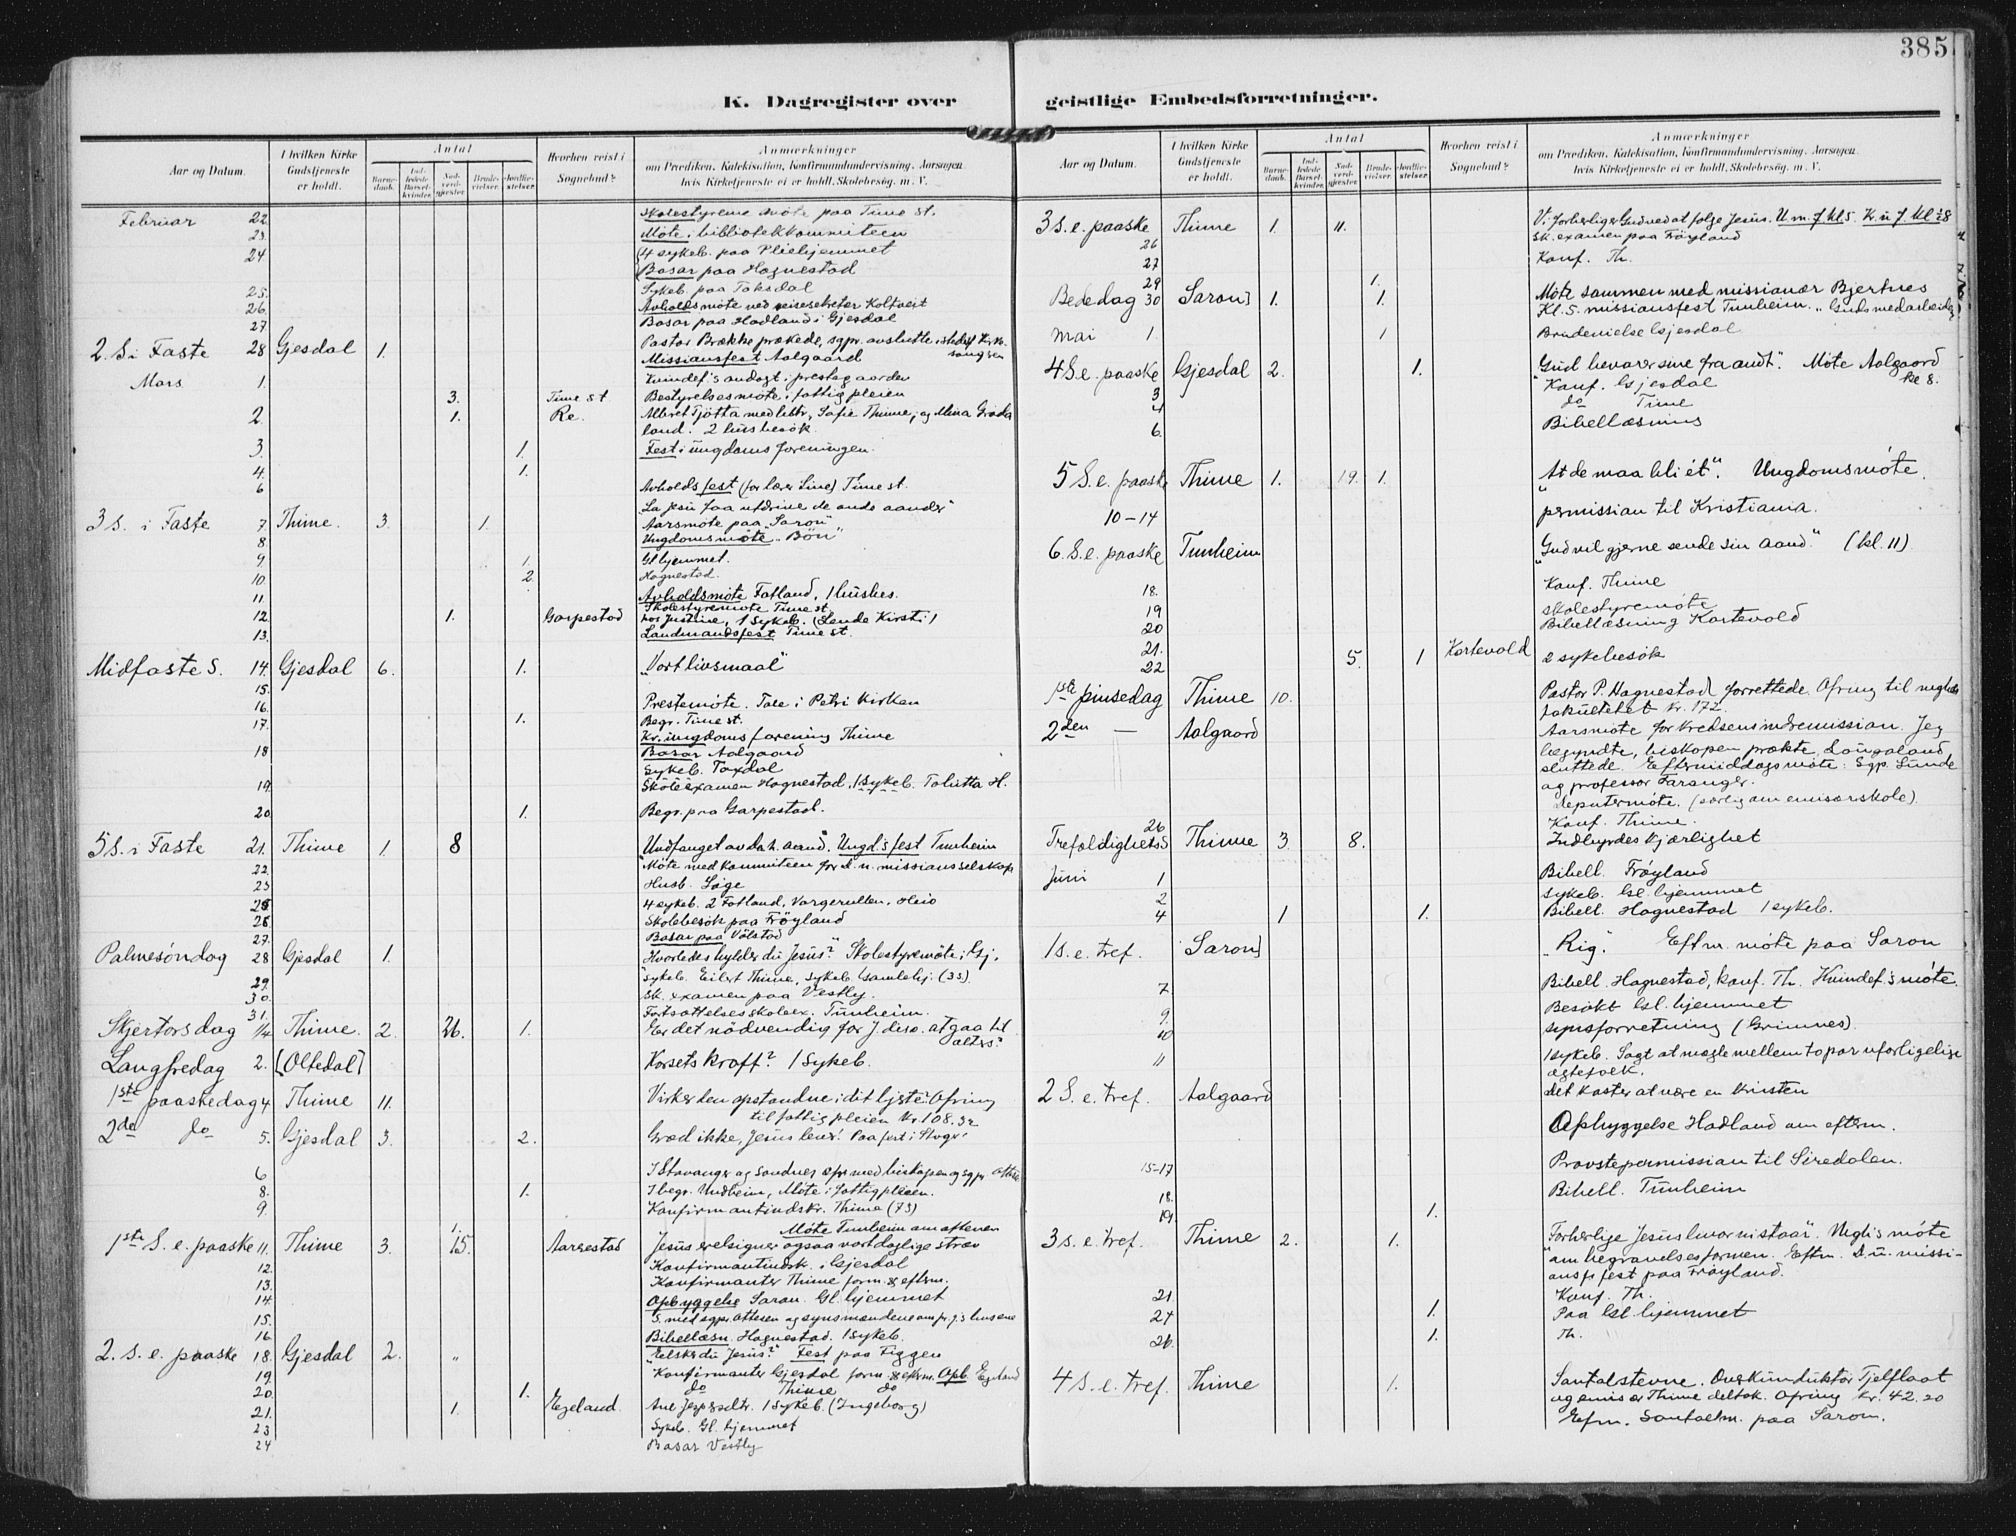 385
K. Dagregister over geistlige Embedsforretninger.
Aar og Datum.
I hvilken Kirke Gudstjeneste er holdt.
Antal
Barnedaab.
Indledede Barselkvinder.
Nadverdgjester
Brudevielser.
Jordfæstelser.
Hvorhen reist i Sognebud?
Anmærkninger
om Prædiken, Katekisation, Konfirmandundervisning, Aarsagen
hvis Kirketjeneste ei er holdt, Skolebesøg. m. V.
Februar 22. Skolestyrene møte paa Time st.
23. Møte i bibliotekkommiteen
24 4 sykeb. paa Pleiehjemmet
Basar paa Hognestad
25. Sykeb. paa Taksdal
26. Avholdsmøte ved reisesekretær Koltveit
27 Basar paa Hadland i Gjesdal
2. S. i Faste 28 Gjesdal 1. Pastor Brække prækede, sgpr. avsluttede
Missiansfest Aalgaard
Mars 1. Kvindef's andagt i prestegaarden
3. Time st Bestyrelsesmøte i fattigpleien
2. 1. Re. Albret Tjötta med hstr, Sofie Thime, og Alma Grøda
land. 2 husbesök
3. 1. Fest i ungdomsforeningen.
4. 1.
6 Avholdsfest (for lærer Sine) Time st.
3 S. i Faste 7. Thime. 3. 1. La Jesu faa utdrive de onde aander"
8. Aarsmøte paa "Saron"
Ungdomsmöte. "Bön"
9. 1. Glhjemmet.
10. 2. Hognestad.
11. Avholdsmøte Fatland, 1 husbes.
12. 1. Garpestad Skolestyremøte Time st.
hos Justine, 1 sykeb. (Lende Kirsti)
13. Landmandsfest Time st.
Midfaste S. 14. Gjesdal 6. 1. "Vort livsmaal"
15.
16. Prestemöte. Tale i Petri kirken
17. 1. Begr. Time st.
Kr. ungdomsforening Thime
18 Basar Aalgaard
Sykeb. Taxdal
19. Skoleexamen Hognestad, 1 sykeb. Tolitta H.
20. 1. Begr. paa Garpestad.
5 S. i Faste 21. Thime 1. 8 Undfanget av d. h. aand. Ungd's fest Tunheim
22. Møte med kommiteen for d. n. missiansselskap
23 Husb. Lóge
25 4 sykeb. 2 Fotland, Vargervllen, Heio
26 Skolebesök paa Fröyland
27. Basar paa Vólstad
Palmesøndag 28 Gjesdal 1. Hvorledes hylder du Jesus? Skolestyremöte i Gj.
29. sykeb. Eilert Thime, sykeb. samlehj. (33)
30. Sk. examen paa Vestly.
31. Fortsættelsesskoleex. Tunheim.
Skjertorsdag 1/4 Thime. 2. 26. 1. Er det nödvendig for J. disc. at gaa til alters?
Langfredag 2. [Oltedal] Korsets kraft? 1 Sykeb.
1ste paaskedag 4 Thime 11. Virker den opstandne i dit hjerte. Ofring
til fattigpleien Kr. 108.32
2de do 5. Gjesdal 3. 2. Græd ikke, Jesus lever.
6 I Stavanger og Sandnes
8. 1. 1 begr. Undheim, Møte i fattigpleien.
9. Konfirmantindskr. Thime (73)
Møte Tunheim om aftenen
1ste S. e. paaske 11. Thime 3. 1. 15. Aarrestad Jesus velsigner ogsaa vort daglige stræv
12. Konfirmantindsk. i Gjesdal
13. Konfirmanter Thime form. & efterm.
14. Opbyggelse Saron. Gl. hjemmet
15.
16. Bibellæsn. Hognestad. 1 sykeb.
2. S. e. paaske 18. Gjesdal 2. " "Elsker du Jesus?" Fest paa Figgen
19. Konfirmanter Gjesdal form. & efterm. Opb. Egeland
20. 1. do Thime do
21. 1. Egeland. Ane Jespersdtr. 1 Sykeb. (Ingeborg)
23 Sykeb. Gl. hjemmet
24 Basar Vestly
Aar og Datum.
I hvilken Kirke Gudstjeneste er holdt.
Antal
Barnedaab.
Indledede Barselkvinder.
Nadverdgjester
Brudevielser.
Jordfæstelser.
Hvorhen reist i Sognebud?
Anmærkninger
om Prædiken, Katekisation, Konfirmandundervisning, Aarsagen
hvis Kirketjeneste ei er holdt, Skolebesøg. m. V.
3 S. e. paaske Thime 1. 11. Vi forherliger Gud ved at følge Jesus. U. m. f. kl 5. K. u. f. kl 8
26 Sk. examen paa Fröyland
27 Konf. Th.
29 1.
Bededag 30 [Saron] 1. 1. Møte sammen med missionær Bjertnes
Kl. 5. missiansfest Tunheim. "Guds medarbeider
Mai 1. 1 Brudevielse Gjesdal
4 S. e. paaske Gjesdal 2. 1. Gud bevarer sine fra ondt". Møte Aalgaard Kl 8.
3 Konf. Gjesdal
4 do Time
6. Bibellæsning
5 S. e. paaske Thime 1. 19. 1. "At de maa bli ét". Ungdomsmöte.
10-14 permissian til Kristiania.
6. S. e. paaske Tunheim "Gud vil gjerne sende sin Aand." (kl. 11)
18. Konf. Thime
19 Skolestyremöte
20 Bibellæsning Kartevold
21.
22 5. 1 Kartevold 2 sykebesök
1ste pinsedag Thime 10. Pastor P. Hognestad forrettede. Ofring til
fakultetet Kr. 172.
2den — Aalgaard Aarsmöte for kredsens indremission. Jeg
begyndte, biskopen prækte, Langaland
sluttede. Eftermiddagsmöte: Sgp. Sunde
og professor Faranger.
Deputermöte. (særlig om emisærskole)
26 Konf. Thime.
Trefoldighets S Thime 3. 8. Indbyrdes kjærlighet
Juni 1 Bibell. Fröyland
2 Sykeb. Gl. hjemmet
4 1 1. Bibell. Hognestad 1 sykeb.
1 S. e. tref. [Saron] "Rig". Eftm. møte paa Saron
7. Bibell. Hognestad, konf. Th. Kvindef's möte.
9. Besökt Gl. hjemmet
10 synsforretning (Grimnes)
11 1 sykeb. Søgt at mægle mellem to par uforligelige
ægtefolk.
2 S. e. tref. Aalgaard Det koster at være en kristen
Opbyggelse Hadland om efterm.
15-17 Provstepermissian til Siredalen.
18. Bibell. Tunheim
19. 1.
3 S. e. tref. Thime 2. 1. Forherlige Jesus hvor vi staar". Meglismöte
om begravelsesformen. Eftm. D. n. missi-
ansfs fest paa Fröyland.
21. Konf. Th.
24 1. Paa Gl. hjemmet
26. 1. Th.
4 S. e. tref. Thime 1. Santalstevne. Overkunduktör Tjelflaat
og emisær Thime deltok. Ofring Kr. 42.20
Efm. Santalm. paa Saron.